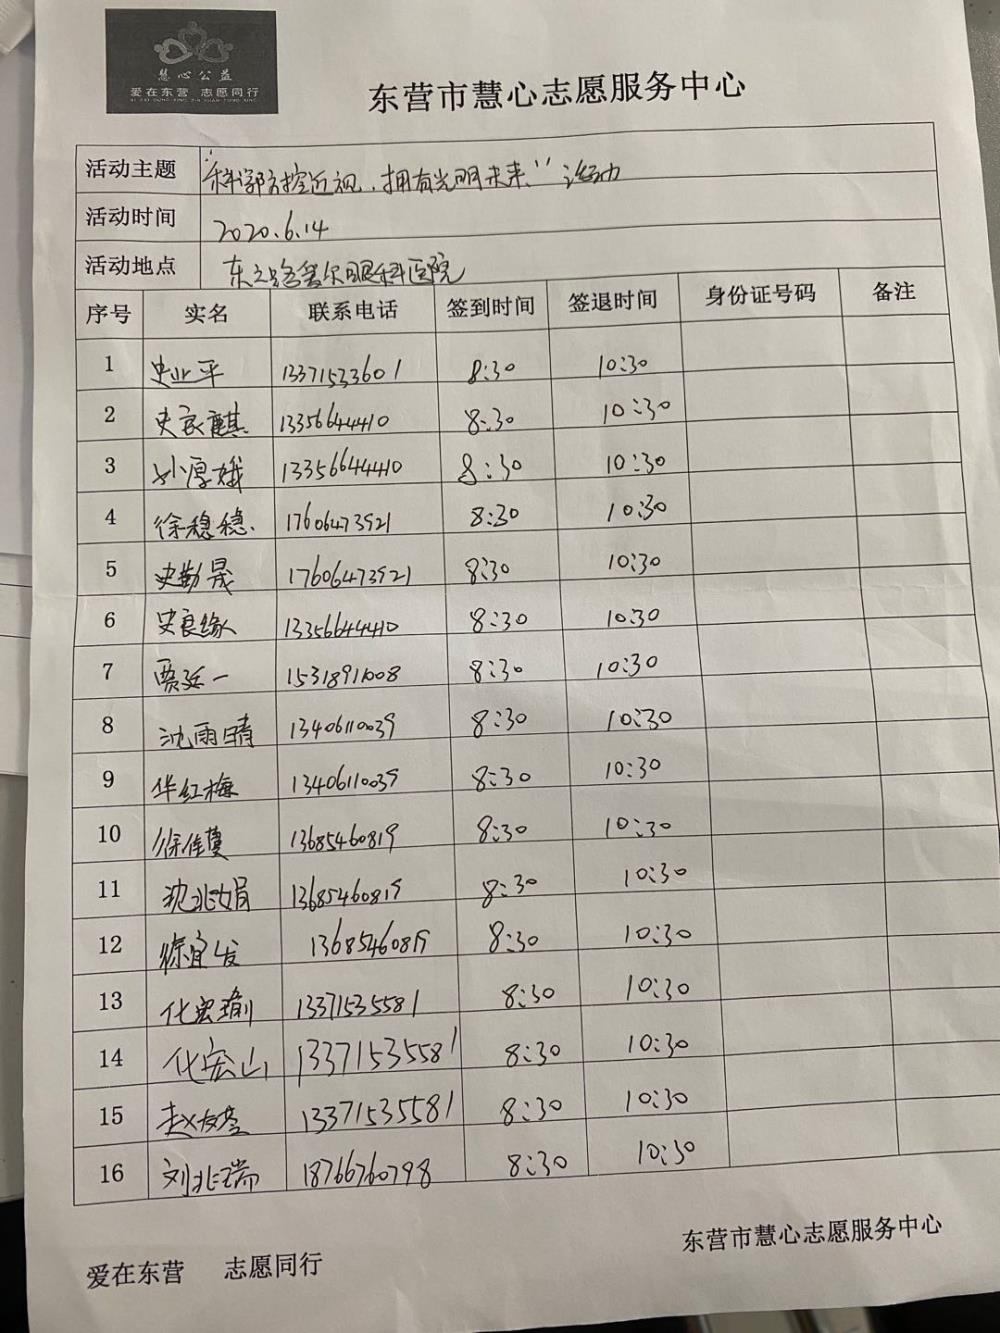 慧心公益
爱在东营 志愿同行
AI ZAI DONG YING ZHI YUAN TONG XING
东营市慧心志愿服务中心
活动主题 "科学防控近视,拥有光明未来"活动
活动时间 2020.6.14
活动地点 东二路爱尔眼科医院
序号 实名 联系电话 签到时间 签退时间 身份证号码 备注
1 史业平 13371533601 8:30 10:30
2 史良麒 13356644410 8:30 10:30
3 孙厚娥 13356644410 8:30 10:30
4 徐穗穗 17606473921 8:30 10:30
5 史勤晟 17606473921 8:30 10:30
6 史良缘 13356644410 8:30 10:30
7 贾延一 15318911008 8:30 10:30
8 沈雨晴 13406110039 8:30 10:30
9 华红梅 13406110039 8:30 10:30
10 徐佳蔓 13685460819 8:30 10:30
11 沈兆娟 13685460819 8:30 10:30
12 徐宜发 13685460819 8:30 10:30
13 化宏瑜 13371535581 8:30 10:30
14 化宏山 13371535581 8:30 10:30
15 赵 13371535581 8:30 10:30
16 刘兆瑞 18766760798 8:30 10:30
东营市慧心志愿服务中心
爱在东营 志愿同行